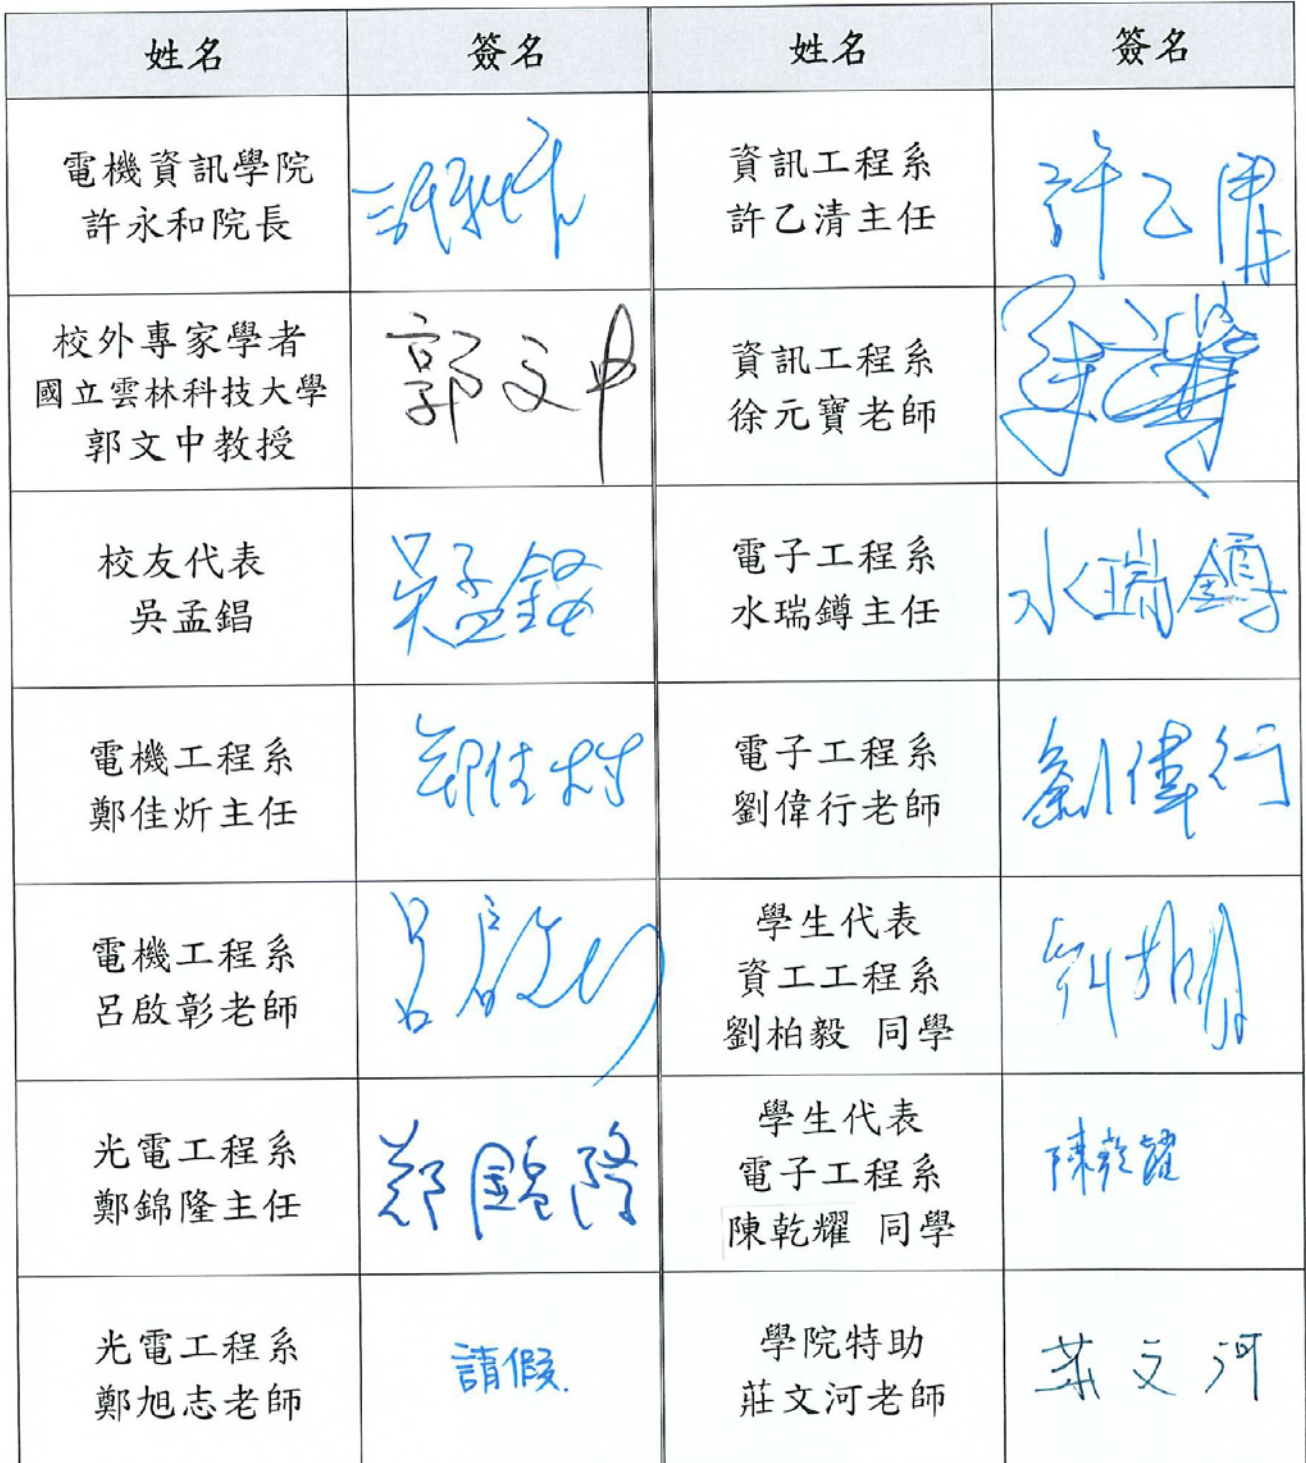 姓名 簽名 姓名 簽名
電機資訊學院
許永和院長
資訊工程系
許乙清主任
許乙清
校外專家學者
國立雲林科技大學
郭文中教授
郭文中
資訊工程系
徐元寶老師
校友代表
吳孟錩
吳孟錩
電子工程系
水瑞鐏主任
水瑞鐏
電機工程系
鄭佳炘主任
鄭佳炘
電子工程系
劉偉行老師
劉偉行
電機工程系
呂啟彰老師
呂啟彰
學生代表
資工工程系
劉柏毅 同學
光電工程系
鄭錦隆主任
鄭錦隆
學生代表
電子工程系
陳乾耀 同學
陳乾耀
光電工程系
鄭旭志老師
請假.
學院特助
莊文河老師
莊文河